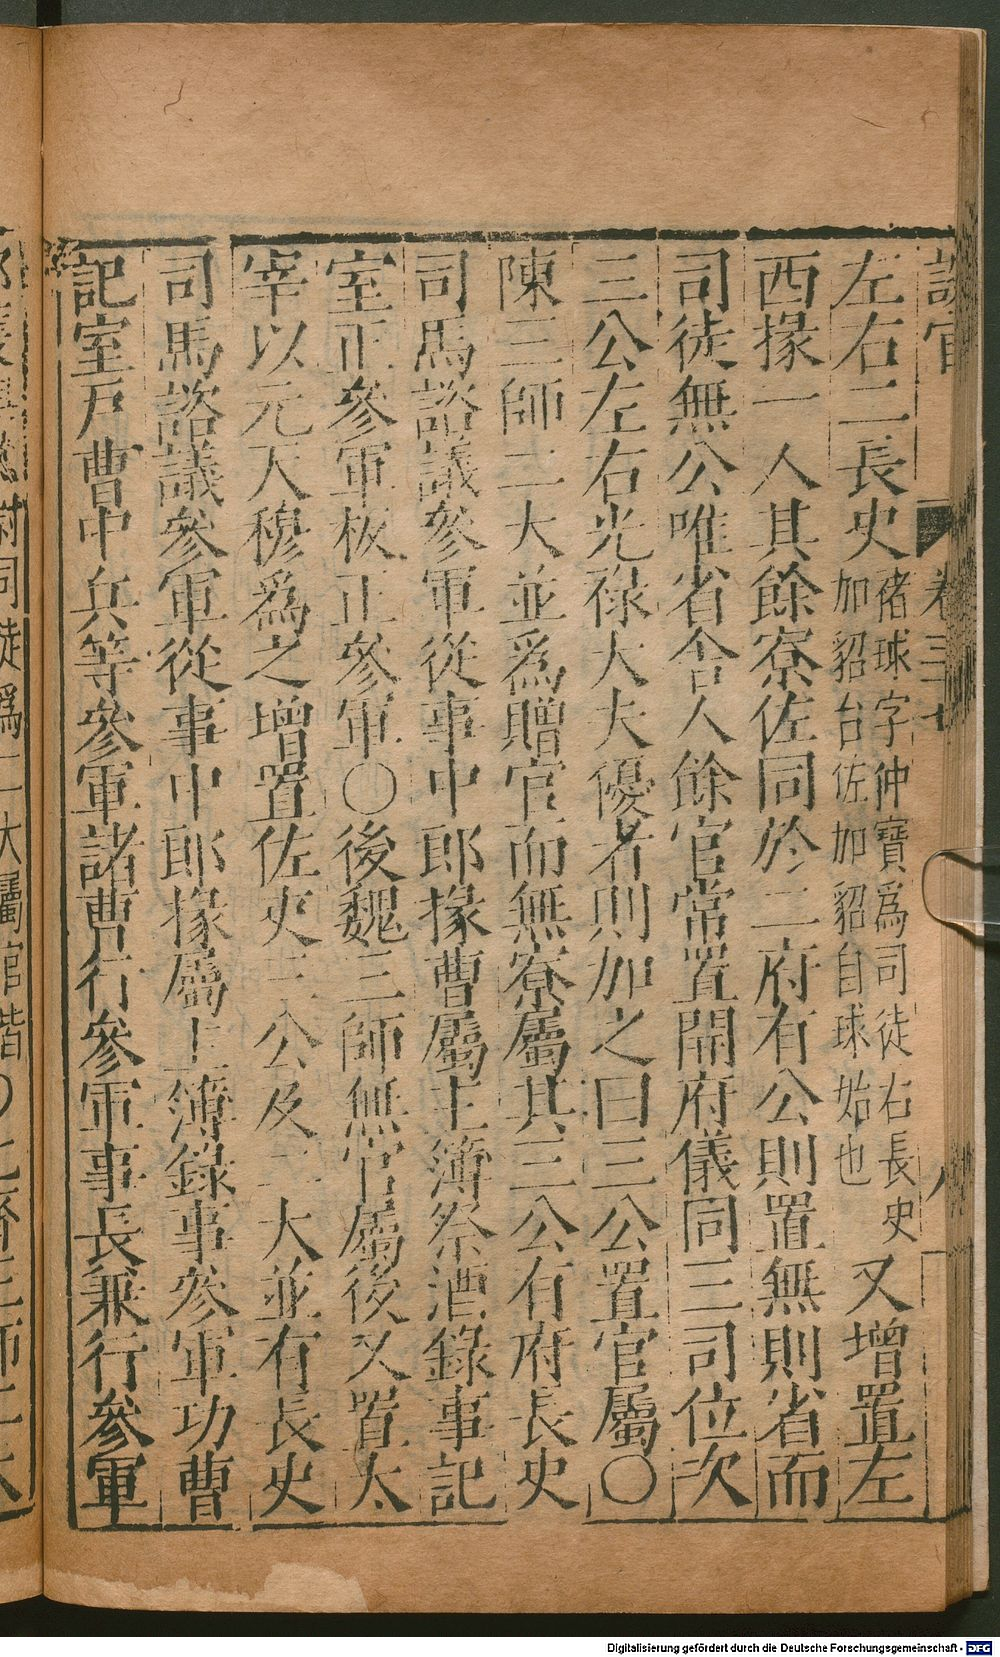 左右二長史褚球字仲寶爲司徒右長史加貂台佐加貂自球始也又增置左
西掾一人其餘寮佐同於二府有公則置無則省而
司徒無公唯省舍人餘官常置開府儀同三司位次
三公左右光祿大夫優者則加之曰三公置官屬〇
陳三師二大並爲贈官而無寮屬其三公有府長史
司馬諮議參軍從事中郎掾曹屬主簿祭酒錄事記
室正參軍板正參軍〇後魏三師無官屬後又置太
宰以元天穆爲之增置佐吏三公及二大並有長史
司馬諮議參軍從事中郎掾屬主簿錄事參軍功曹
記室戶曹中兵等參軍諸曹行參軍事長兼行參軍
卷三十
八
Digitalisierung gefördert durch die Deutsche Forschungsgemeinschaft - DFG